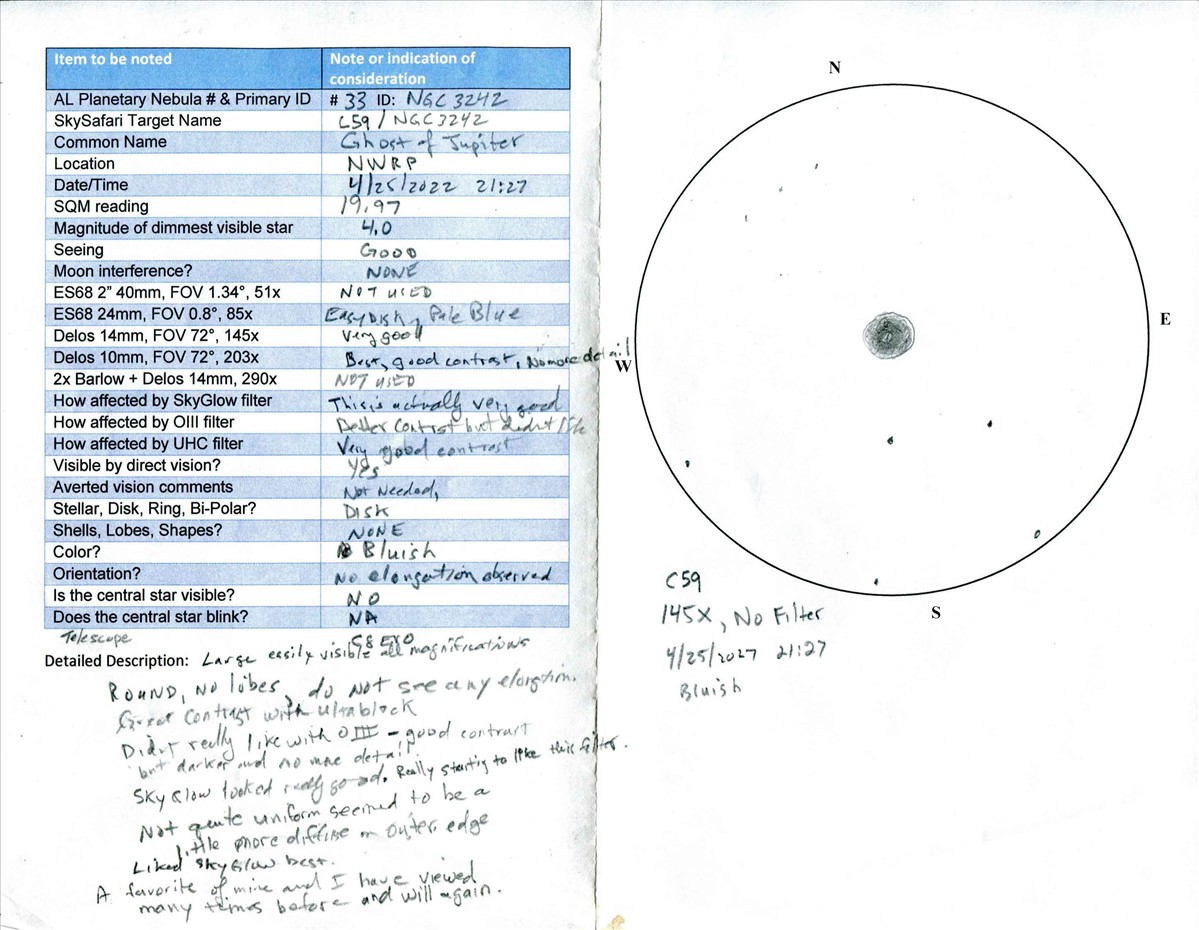 Item to be noted Note or indication of consideration
AL Planetary Nebula # & Primary ID # 33 ID: NGC 3242
SkySafari Target Name C59 / NGC 3242
Common Name Ghost of Jupiter
Location NWRP
Date/Time 4/25/2022 21:27
SQM reading 19.97
Magnitude of dimmest visible star 4.0
Seeing GOOD
Moon interference? NONE
ES68 2" 40mm, FOV 1.34°, 51x NOT USED
ES68 24mm, FOV 0.8°, 85x Easy DISK, Pale Blue
Delos 14mm, FOV 72°, 145x Very good
Delos 10mm, FOV 72°, 203x Best, good contrast, No more detail
2x Barlow + Delos 14mm, 290x NOT USED
How affected by SkyGlow filter This is actually very good
How affected by OIII filter Better contrast but didnt like
How affected by UHC filter Very good contrast
Visible by direct vision? Yes
Averted vision comments Not Needed,
Stellar, Disk, Ring, Bi-Polar? DISK
Shells, Lobes, Shapes? NONE
Color? Bluish
Orientation? No elongation observed
Is the central star visible? NO
Does the central star blink? NA
Telescope C8 EXO
Detailed Description: Large easily visible all magnifications
ROUND, NO lobes, do NOT see any elongtion.
Great contrast with ultrablock
Didnt really like with OIII - good contrast
but darker and no more detail.
Sky Glow looked really good. Really startig to like this filter.
Not quite uniform seemed to be a
little more diffuse on outer edge
Liked SkyGlow best.
A favorite of mine and I have viewed
many times before and will again.
N
E
W
S
C59
145X, No Filter
4/25/2027 21:27
Bluish